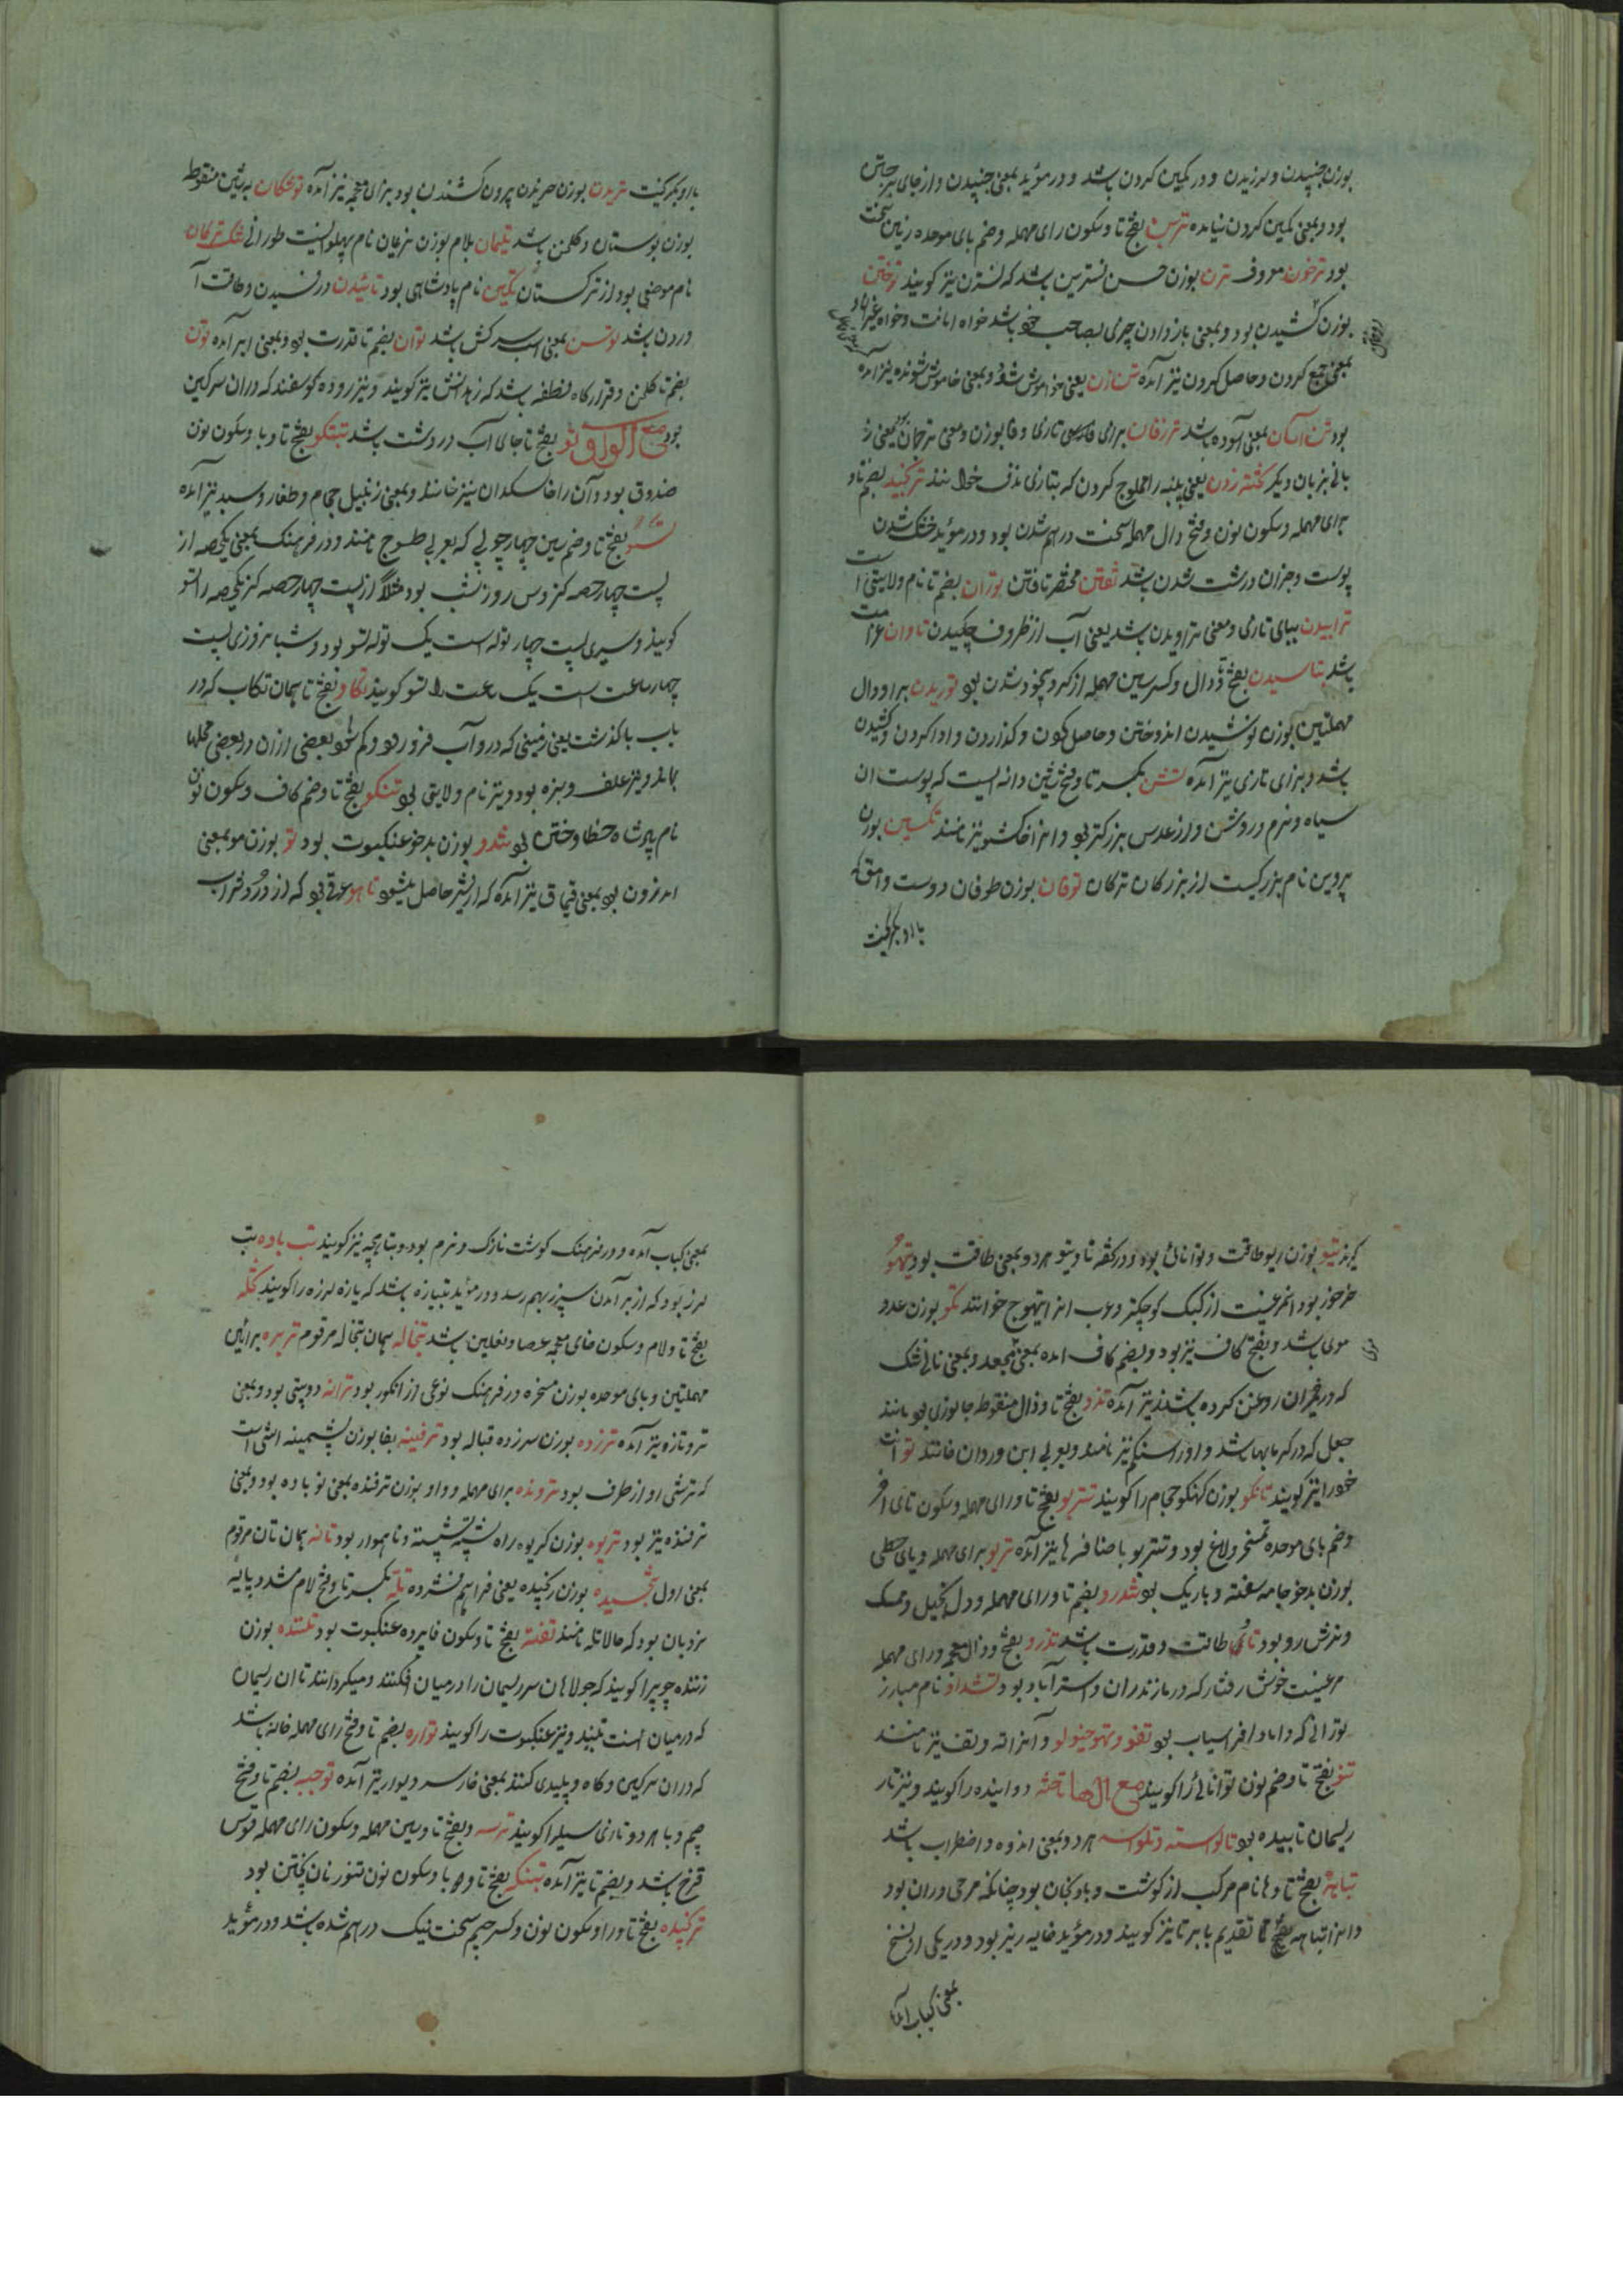 بوزن جنبیدن ولرزیدن و در کمین کردن باشد و در مؤید بمعنی جنبیدن و از جای برجستن
بود و بمعنی کمین کردن نیامده بفتح تا و سکون رای مهمله و ضم بای موحده زمین سخت
بود ترخون معروف ترن بوزن حسن نسترین باشد که نسترن نیز کویند توختن
بوزن کشیدن بود و بمعنی باز دادن چیزی بصاحب خود باشد خواه امانت و خواه غیر آن
بمعنی جمع کردن و حاصل کردن نیز آمده تن زن یعنی خاموش شو و بمعنی خاموش شونده نیز آمده
بود تن آسان بمعنی آسوده باشد ترزفان برای فارسی تازی و فا بوزن و معنی ترجمان یعنی
بزبان دیکر یعنی پنبه را حلوج کردن که بتازی ندف خوانند ترنجیدن بفتح تا و
رای مهمله و سکون نون و فتح دال مهمله سخت درهم شدن بود و در مؤید خشک شدن
پوست و جز آن درشت شدن باشد تفتن مختصر تافتن توران بضم تا نام ولایتی است
ترابیدن ببای تازی و معنی تراویدن باشد یعنی آب از ظروف چکیدن تاوان غرامت
باشد تاسیدن بفتح و کسر سین مهمله از کرد بیخود شدن بود توزیدن برا و دال
مهملتین بوزن نوشیدن اندوختن و حاصل کردن و کذاردن و ادا کردن و کشیدن
باشد و بزای تازی نیز آمده تشن بکسر تا و فتح شین دانه ایست که پوست آن
سیاه و نرم و روشن و از عدس بزرکتر بود و آنرا خاکشو نیز نامند تکسین بوزن
پروین نام بزرکیست از بزرکان ترکان توفان بوزن طوفان دوست وامق که
با او بکریخت
با او بکریخت تریدن بوزن خریدن بیرون کشیدن بود بزای معجمه نیز آمده توشکان بشین منقوط
بوزن بوستان و کلخن باشد تلیمان بلام بوزن نریمان نام پهلوانیست طورانی
نام موضعی بود از ترکستان تکین نام پادشاهی بود تائیدن درنسیدن و طاقت آ
وردن باشد توسن بمعنی اسب سرکش باشد توان بضم تا قدرت بود و بمعنی ابر آمده تون
بضم تا کلخن و قرارکاه نطفه باشد که زهدانش نیز کویند و نیز روده کوسفند که در آن سرکین
بود مع الواو تو بفتح تا جای آب در دشت باشد تبنکو بفتح تا و با و سکون نون
صندوق بود و آن را خاشکدان نیز خوانند و بمعنی زنبیل حجام و طغار و سبد نیز آمده
تسو بفتح تا و ضم سین چهار جو که بعربی طسوج نامند و در فرهنک بمعنی یک حصه از
بیست چهار حصه کز و من و روز شب بود مثلاً از بیست چهار حصه کز یک حصه را تسو
کویند و سیری بیست چهار توله است یک توله تسو بود و شبانه روزی بیست
چهار ساعت است یک ساعت را تسو کویند تکاو بفتح تا همان تکاب که در
باب با کذشت یعنی زمینی که در و آب فرو رود و کم شود بعضی از آن و بعضی محلها
بماند و نیز علف و سبزه بود و نیز نام ولایتی بود تنکو بفتح تا و ضم کاف و سکون نون
نام پادشاه خطا و ختن بود تندو بوزن بدخو عنکبوت بود تو بوزن مو بمعنی
اندرون بود بمعنی قیماق نیز آمده که از شیر حاصل میشود تاهو عرقی بود که از دردشراب
کیرند تیو بوزن ریو طاقت و توانائی بود و تاو و تیو هر دو بمعنی طاقت بود تیهو
مرغیست از کبک کوچکتر و عرب آنرا تیهوج خوانند تکو بوزن عدو
موی باشد و بفتح کاف نیز بود و بضم کاف آمده بمعنی مجعد و بمعنی نانی خشک
که در خمیر آن روغن کرده باشند نیز آمده تذو بفتح تا و ذال منقوطه جانوری بود مانند
جعل که در کرمابها باشد و او را سنکم نیز نامند و بعربی ابن وردان خوانند
تانکو بوزن کهنکو حجام را کویند تتربو بفتح تا و رای مهمله و سکون تای آخر
و ضم بای موحده تمسخر و لاغ بود و تتربو باضافه ها نیز آمده تریو برای مهمله و یای حطی
بوزن بدخو جامه سفته و باریک بود تندرو بضم تا و رای مهمله و دل بخیل و ممسک
و ترش رو بود تاو طاقت و قدرت باشد تذرو بفتح و ذال معجمه و رای مهمله
مرغیست خوش رفتار که در مازندران و استرآباد بود نام مبارز
تورانی که داماد افراسیاب بود تفو و تهو خیو و آنرا تف نیز نامند
تنو بفتح تا و ضم نون توانائی را کویند مع الها تاخته دوانیده را کویند و نیز تار
ریسمان تابیده بود تالواسه و تلواسه هر دو بمعنی اندوه و اضطراب باشد
تباهه بفتح تا و ها نام مرکب از کوشت و بادنجان بود
و در مؤید خایه ریز بود و در یکی از نسخ
بمعنی کباب آمده
بمعنی کباب آمده و در فرهنک کوشت نازک و نرم بود و تباهچه نیز کویند تب یازه تب
لرز بود که از بر آمدن سپرز بهم رسد و در مؤید تبیازه باشد که یازه لرزه را کویند تخله
بفتح تا و لام و سکون خای معجمه عصا و نعلین باشد تبخاله همان تبخال مرقوم تربره برائین
مهملتین و بای موحده بوزن مسخره در فرهنک نوعی از انکور بود ترانه دو بیتی بود و بمعنی
تر و تازه نیز آمده ترزده بوزن سرزده قباله بود ترفینه بفا بوزن پشمینه آشی است
که ترشی او از طرف بود تروند‌ه برای مهمله و واو بوزن ترفنده بمعنی نو باوه بود و بمعنی
ترفنده نیز بود تریوه بوزن کریوه راه پشته پشته و ناهموار بود تانه همان تان مرقوم
بمعنی اول تنجیده بوزن رنجیده یعنی فراهم فشرده تله بکسر تا و فتح لام مشدد پایه
نردبان بود که حالا تله نامند تفنه بفتح تا و سکون فا پرده عنکبوت بود تننده بوزن
زننده چوبی را کویند که جولاهان سر ریسمان را در میان افکنند و میکردانند تا آن ریسمان
که در میان آنست تنیده و نیز عنکبوت را کویند تواره بضم تا و فتح رای مهمله خانه باشد
که در آن سرکین و کاه و پلیدی کنند بمعنی خار بست دیوار نیز آمده توجبه بضم تا و فتح
جیم و با هر دو تازی سیل را کویند ترسه و بفتح تا و سین مهمله و سکون رای مهمله قوس
قزح باشد و بضم تا نیز آمده تبنکه بفتح تا و با و سکون نون تنور نان پختن بود
ترنجیده بفتح تا و را و سکون نون و کسر جیم سخت نیک درهم شده باشد و در مؤید